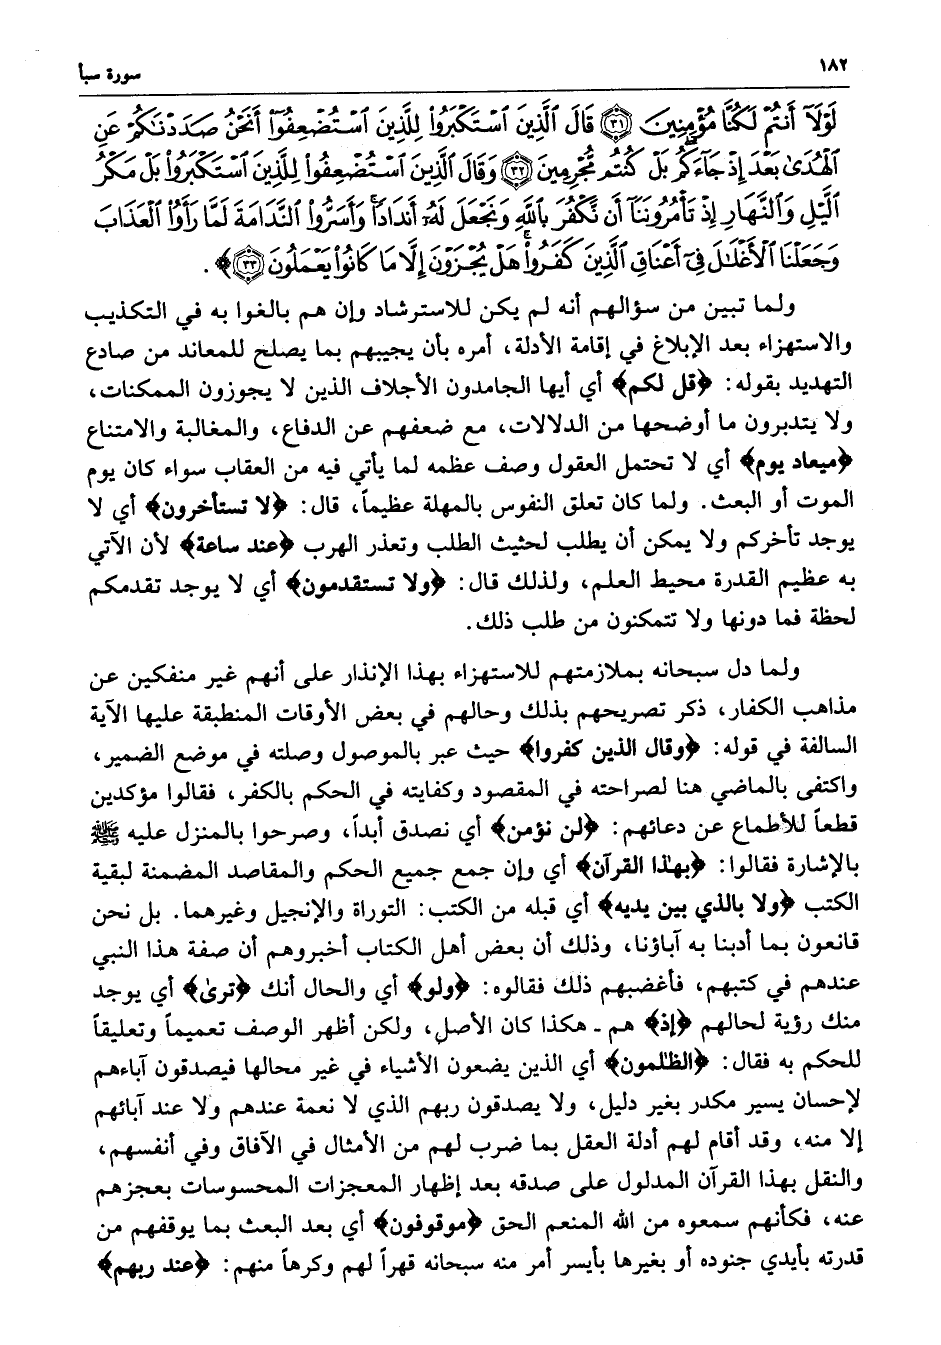 ١٨٢
سورة سبأ
لَوْلَآ أَنتُمْ لَكُنَّا مُؤْمِنِينَ ﴿٣١﴾ قَالَ ٱلَّذِينَ ٱسْتَكْبَرُوا۟ لِلَّذِينَ ٱسْتُضْعِفُوٓا۟ أَنَحْنُ صَدَدْنَـٰكُمْ عَنِ
ٱلْهُدَىٰ بَعْدَ إِذْ جَآءَكُم ۖ بَلْ كُنتُم مُّجْرِمِينَ ﴿٣٢﴾ وَقَالَ ٱلَّذِينَ ٱسْتُضْعِفُوا۟ لِلَّذِينَ ٱسْتَكْبَرُوا۟ بَلْ مَكْرُ
ٱلَّيْلِ وَٱلنَّهَارِ إِذْ تَأْمُرُونَنَآ أَن نَّكْفُرَ بِٱللَّهِ وَنَجْعَلَ لَهُۥٓ أَندَادًا ۚ وَأَسَرُّوا۟ ٱلنَّدَامَةَ لَمَّا رَأَوُا۟ ٱلْعَذَابَ
وَجَعَلْنَا ٱلْأَغْلَـٰلَ فِىٓ أَعْنَاقِ ٱلَّذِينَ كَفَرُوا۟ ۚ هَلْ يُجْزَوْنَ إِلَّا مَا كَانُوا۟ يَعْمَلُونَ ﴿٣٣﴾﴾.
ولما تبين من سؤالهم أنه لم يكن للاسترشاد وإن هم بالغوا به في التكذيب
والاستهزاء بعد الإبلاغ في إقامة الأدلة، أمره بأن يجيبهم بما يصلح للمعاند من صادع
التهديد بقوله: ﴿قل لكم﴾ أي أيها الجامدون الأجلاف الذين لا يجوزون الممكنات،
ولا يتدبرون ما أوضحها من الدلالات، مع ضعفهم عن الدفاع، والمغالبة والامتناع
﴿ميعاد يوم﴾ أي لا تحتمل العقول وصف عظمه لما يأتي فيه من العقاب سواء كان يوم
الموت أو البعث. ولما كان تعلق النفوس بالمهلة عظيماً، قال: ﴿لا تستأخرون﴾ أي لا
يوجد تأخركم ولا يمكن أن يطلب لحثيث الطلب وتعذر الهرب ﴿عند ساعة﴾ لأن الآتي
به عظيم القدرة محيط العلم، ولذلك قال: ﴿ولا تستقدمون﴾ أي لا يوجد تقدمكم
لحظة فما دونها ولا تتمكنون من طلب ذلك.
ولما دل سبحانه بملازمتهم للاستهزاء بهذا الإنذار على أنهم غير منفكين عن
مذاهب الكفار، ذكر تصريحهم بذلك وحالهم في بعض الأوقات المنطبقة عليها الآية
السالفة في قوله: ﴿وقال الذين كفروا﴾ حيث عبر بالموصول وصلته في موضع الضمير،
واكتفى بالماضي هنا لصراحته في المقصود وكفايته في الحكم بالكفر، فقالوا مؤكدين
قطعاً للأطماع عن دعائهم: ﴿لن نؤمن﴾ أي نصدق أبداً، وصرحوا بالمنزل عليه ﷺ
بالإشارة فقالوا: ﴿بهٰذا القرآن﴾ أي وإن جمع جميع الحكم والمقاصد المضمنة لبقية
الكتب ﴿ولا بالذي بين يديه﴾ أي قبله من الكتب: التوراة والإنجيل وغيرهما. بل نحن
قانعون بما أدبنا به آباؤنا، وذلك أن بعض أهل الكتاب أخبروهم أن صفة هذا النبي
عندهم في كتبهم، فأغضبهم ذلك فقالوه: ﴿ولو﴾ أي والحال أنك ﴿ترىٰ﴾ أي يوجد
منك رؤية لحالهم ﴿إذ﴾ هم - هكذا كان الأصل، ولكن أظهر الوصف تعميماً وتعليقاً
للحكم به فقال: ﴿الظٰلمون﴾ أي الذين يضعون الأشياء في غير محالها فيصدقون آباءهم
لإحسان يسير مكدر بغير دليل، ولا يصدقون ربهم الذي لا نعمة عندهم ولا عند آبائهم
إلا منه، وقد أقام لهم أدلة العقل بما ضرب لهم من الأمثال في الآفاق وفي أنفسهم،
والنقل بهذا القرآن المدلول على صدقه بعد إظهار المعجزات المحسوسات بعجزهم
عنه، فكأنهم سمعوه من الله المنعم الحق ﴿موقوفون﴾ أي بعد البعث بما يوقفهم من
قدرته بأيدي جنوده أو بغيرها بأيسر أمر منه سبحانه قهراً لهم وكرهاً منهم: ﴿عند ربهم﴾